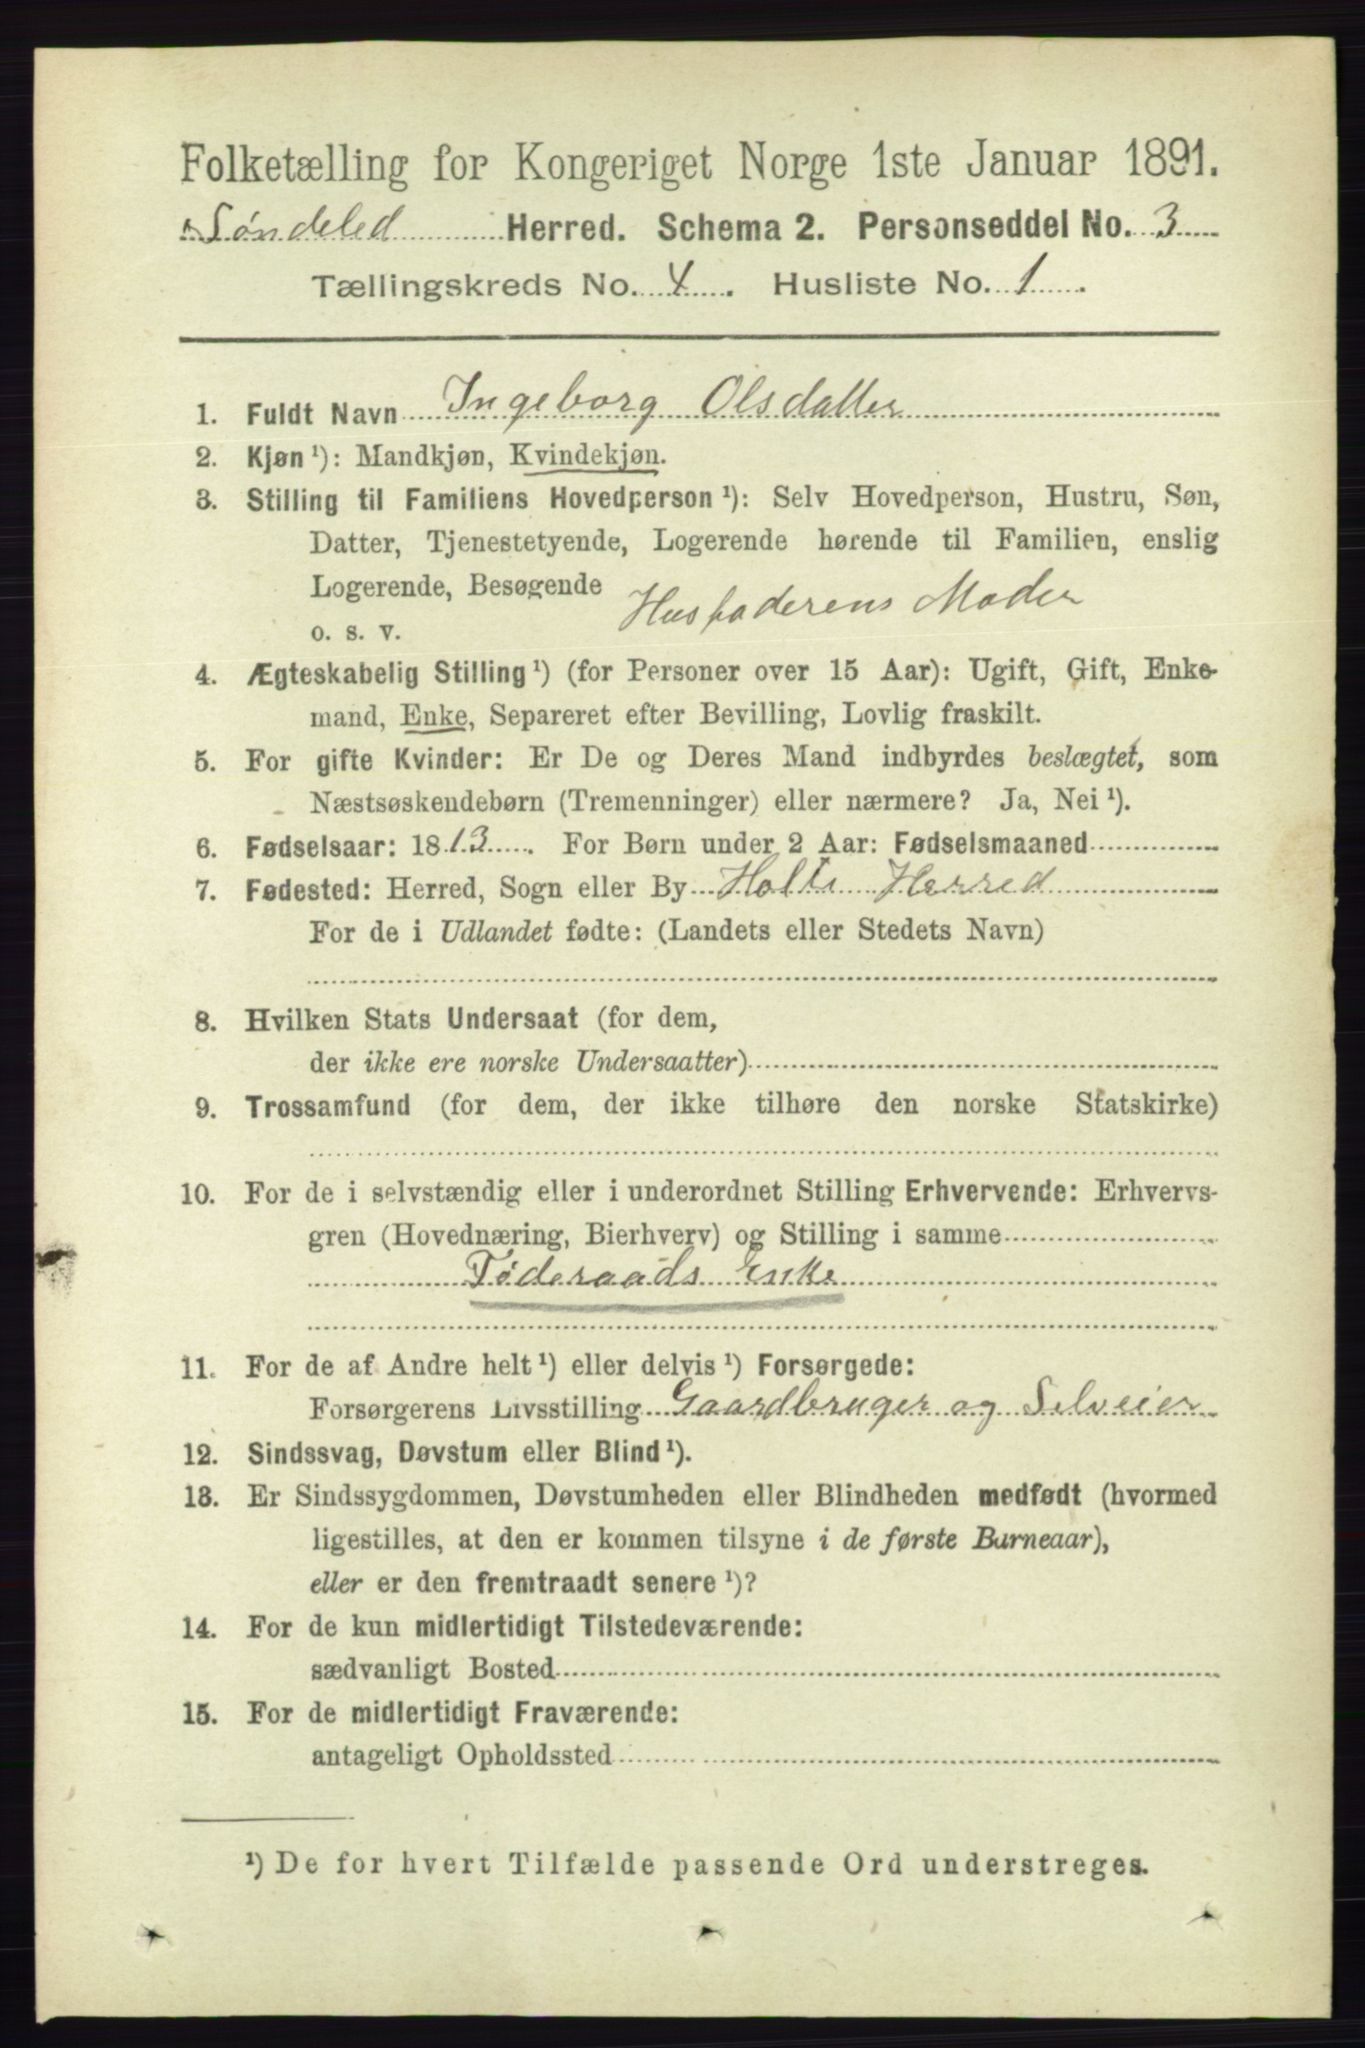 Folketælling for Kongeriget Norge 1ste Januar 1891.
Søndeled Herred. Schema 2. Personseddel No. 3
Tællingskreds No. 4. Husliste No. 1.
1. Fuldt Navn Ingeborg Olsdatter
2. Kjøn ¹): Mandkjøn, Kvindekjøn.
3. Stilling til Familiens Hovedperson ¹): Selv Hovedperson, Hustru, Søn,
Datter, Tjenestetyende, Logerende hørende til Familien, enslig
Logerende, Besøgende
o. s. v. Husfaderens Moder
4. Ægteskabelig Stilling ¹) (for Personer over 15 Aar): Ugift, Gift, Enke-
mand, Enke, Separeret efter Bevilling, Lovlig fraskilt.
5. For gifte Kvinder: Er De og Deres Mand indbyrdes beslægtet, som
Næstsøskendebørn (Tremenninger) eller nærmere? Ja, Nei ¹).
6. Fødselsaar: 1813. For Børn under 2 Aar: Fødselsmaaned
7. Fødested: Herred, Sogn eller By Holte Herred
For de i Udlandet fødte: (Landets eller Stedets Navn)
8. Hvilken Stats Undersaat (for dem,
der ikke ere norske Undersaatter)
9. Trossamfund (for dem, der ikke tilhøre den norske Statskirke)
10. For de i selvstændig eller i underordnet Stilling Erhvervende: Erhvervs-
gren (Hovednæring, Bierhverv) og Stilling i samme
Føderaads Enke
11. For de af Andre helt ¹) eller delvis ¹) Forsørgede:
Forsørgerens Livsstilling Gaardbruger og Selveier
12. Sindssvag, Døvstum eller Blind ¹).
13. Er Sindssygdommen, Døvstumheden eller Blindheden medfødt (hvormed
ligestilles, at den er kommen tilsyne i de første Barneaar),
eller er den fremtraadt senere ¹)?
14. For de kun midlertidigt Tilstedeværende:
sædvanligt Bosted
15. For de midlertidigt Fraværende:
antageligt Opholdssted
¹) De for hvert Tilfælde passende Ord understreges.